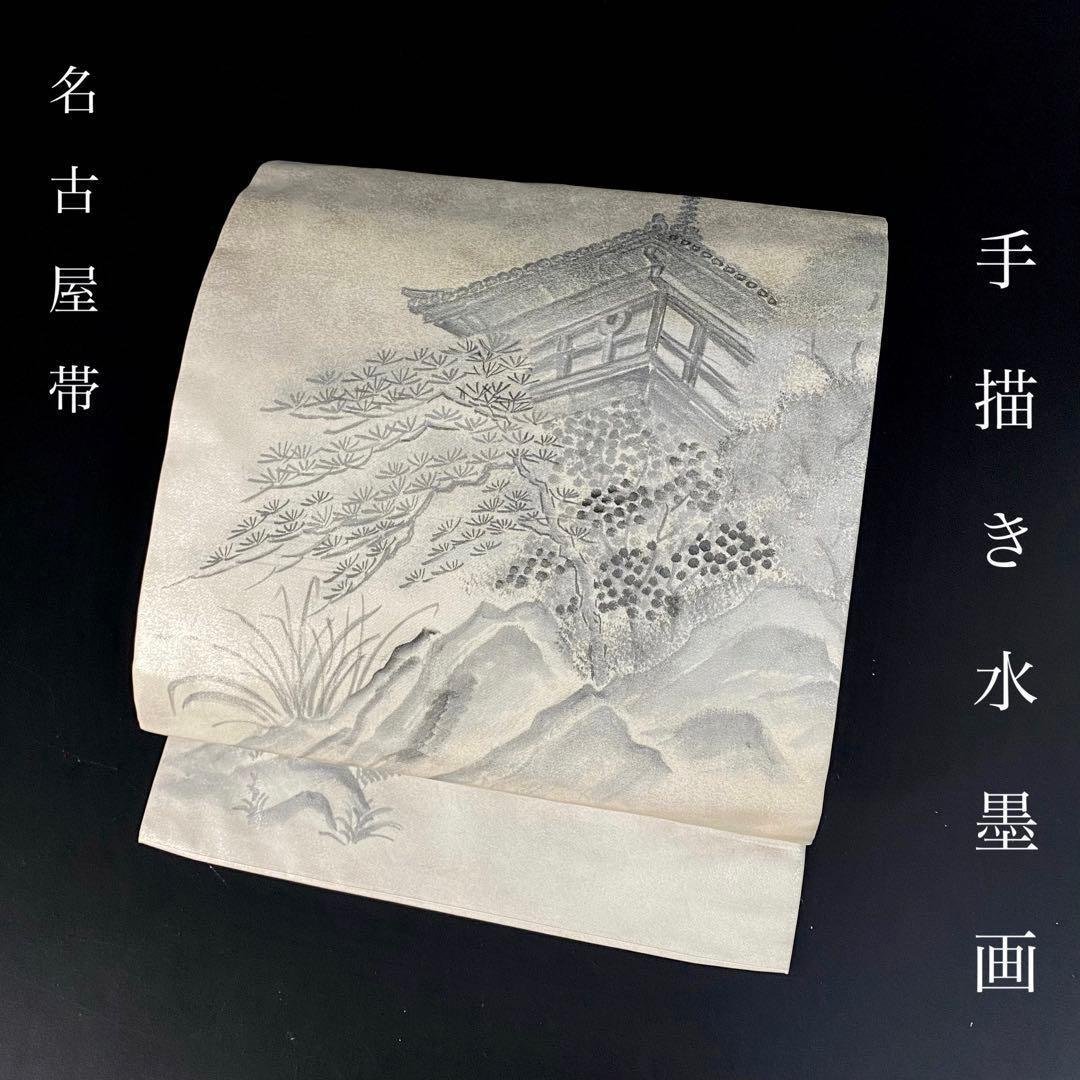 手描き水墨画
名古屋帯